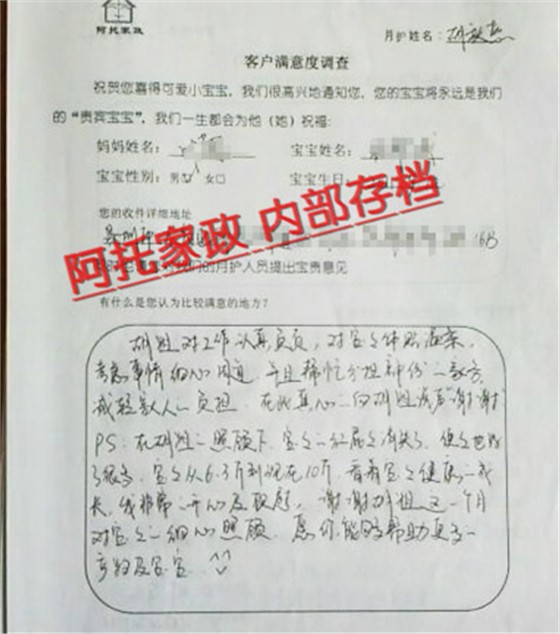 阿托家政
月护姓名：胡
客户满意度调查
祝贺您喜得可爱小宝宝，我们很高兴地通知您，您的宝宝将永远是我们
的“贵宾宝宝”，我们一生都会为他（她）祝福：
妈妈姓名： 宝宝姓名：
宝宝性别：男 女□ 宝宝生日：
您的收件详细地址
16B
阿托家政 内部存档
我们的月护人员提出宝贵意见
有什么是您认为比较满意的地方？
胡姐对工作认真负责，对宝宝体贴温柔，
考虑事情细心周道，并且帮忙分担部份家务
减轻家人负担，在此真心向胡姐说声“谢谢”
PS：在胡姐照顾下，宝宝红屁屁消失了，
了很多，宝宝从6.3斤到现在10斤，看着宝宝健康成
长，我非常开心及欣慰，谢谢胡姐这一个月
对宝宝细心照顾，愿你能够帮助更多
产妇及宝宝 ^^